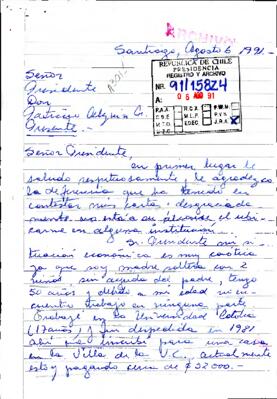 ARCHIVO
Santiago, Agosto 6 1991.-
REPUBLICA DE CHILE
PRESIDENCIA
REGISTRO Y ARCHIVO
NR. 91/15824
A: 06 AGO 91
Señor
Presidente
Don
Patricio Aylwin
Presente.-
Señor Presidente:
en primer lugar le
saludo respetuosamente, le agradezco
la deferencia que ha tenido en
contestar mis cartas, desgraciada
mente no está a su alcance el ubi
carme en alguna institución.
Sr. Presidente mi si
tuación económica es muy caótica
ya que soy madre soltera con 2
niños, sin ayuda del padre, tengo
50 años y debido a mi edad no en
cuentro trabajo en ninguna parte
trabajé en la Universidad Católica
(17 años) y fui despedida en 1981
ahí me inscribí para una casa
en la Villa de la U.C. actualmente
estoy pagando cerca de $32000.-